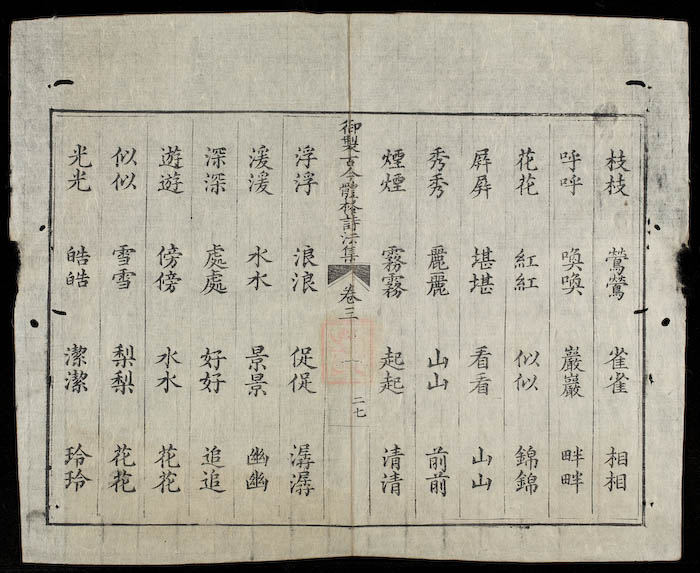 枝枝鶯鶯雀雀相相
呼呼喚喚巖巖畔畔
花花紅紅似似錦錦
屏屏堪堪看看山山
秀秀麗麗山山前前
煙煙霧霧起起清清
御製古今體格詩法集 卷三 二七
浮浮浪浪促促潺潺
湲湲水水景景幽幽
深深處處好好追追
遊遊傍傍水水花花
似似雪雪梨梨花花
光光皓皓潔潔玲玲